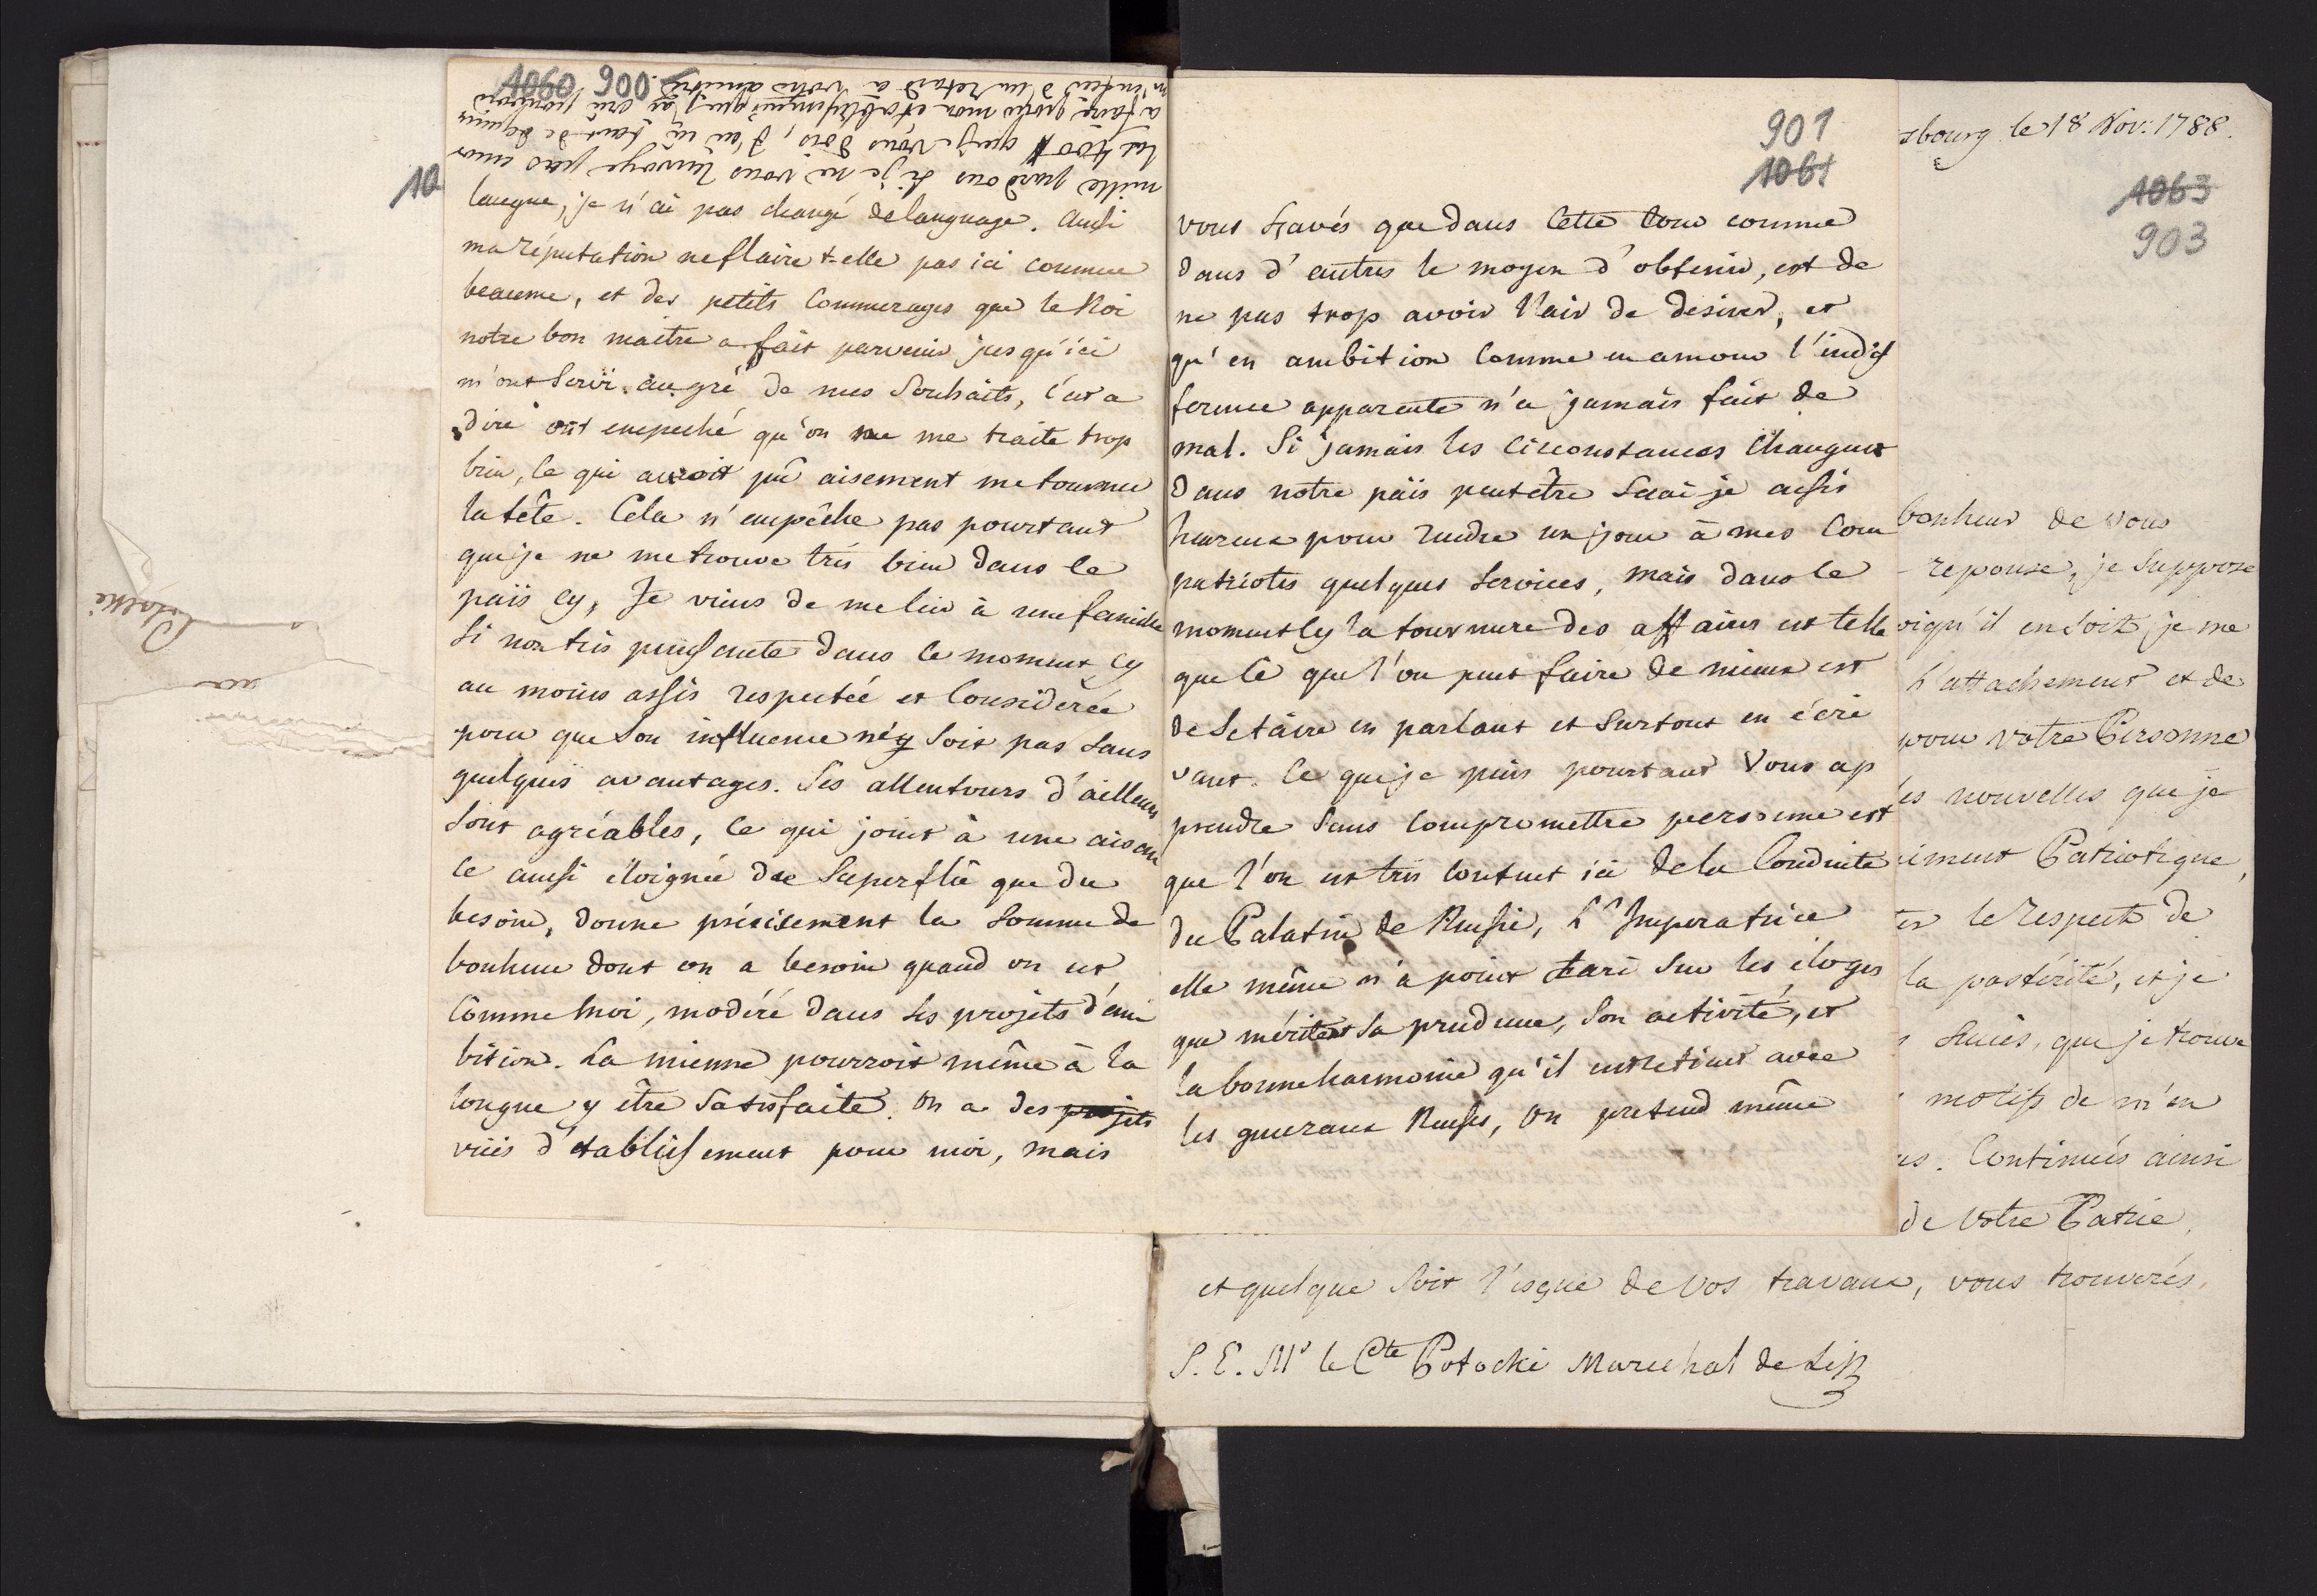 1060 900.
mille pardons si je ne vous renvoye pas encor
les 400 # que je vous dois, j'ai eu tant de depenses
a faire pour mon etablissement que j'ai cru pouvoir
un retard à votre amitié
10
langue, je n'ai pas changé de language. aussi
ma réputation ne flaire t-elle pas ici comme
beaume, et des petits Commerages que le Roi
notre bon maitre a fait parvenir jusqu'ici
m'ont servi au gré de mes Souhaits, c'est a
dire ont empeché qu'on ne me traite trop
bien, ce qui auroit pû aisement me tourner
la tête. Cela n'empêche pas pourtant
que je ne me trouve très bien dans ce
païs cy, Je viens de me lier à une famille
Si non très puissante dans ce moment cy
au moins assés respectée et Considerée
pour que Son influence n'y soit pas sans
quelques avantages. Ses allentours d'ailleurs
Sont agréables, Ce qui joint à une aisan
ce aussi éloignée du Superflû que du
besoin, donne précisement la Somme de
bonheur dont on a besoin quand on est
Comme moi, modéré dans ses projets d'am
bition. La mienne pourroit même à la
longue y être Satisfaite. On a des projets
vües d'établissement pour moi, mais
901
1061
vous savés que dans Cette Cour comme
dans d'autres le moyen d'obtenir, est de
ne pas trop avoir l'air de desirer, et
qu'en ambition Comme en amour l'indif
ference apparente n'a jamais fait de
mal. Si jamais les Circonstances Changent
dans notre païs peutêtre Serai je assés
heureux pour rendre un jour à mes Com
patriotes quelques Services, mais dans le
moment cy la tournure des affaires est telle
que Ce que l'on peut faire de mieux est
de Se taire en parlant et Surtout en écri
vant. Ce que je puis pourtant Vous ap
prendre Sans Compromettre personne est
que l'on est très Content ici de la Conduite
du Palatin de Russie, L'Imperatrice
elle même n'a point tari Sur les éloges
que méritent Sa prudence, Son activité, et
la bonne harmonie qu'il entretient avec
les generaux Russes, On pretend même
sbourg le 18 Nov: 1788.
1063
903
bonheur de vous
reponse, je Suppose
oiqu'il en soit je me
L'attachement et de
pour votre Personne
es nouvelles que je
iment Patriotique,
er le respect de
la postérité, et je
Succès, que je trouve
motifs de m'en
es. Continués ainsi
de Votre Patrie,
et quelque Soit l'issue de Vos travaux, vous trouverés,
S. E. Mr le Cte Potocki Marechal de Lit
Potocki